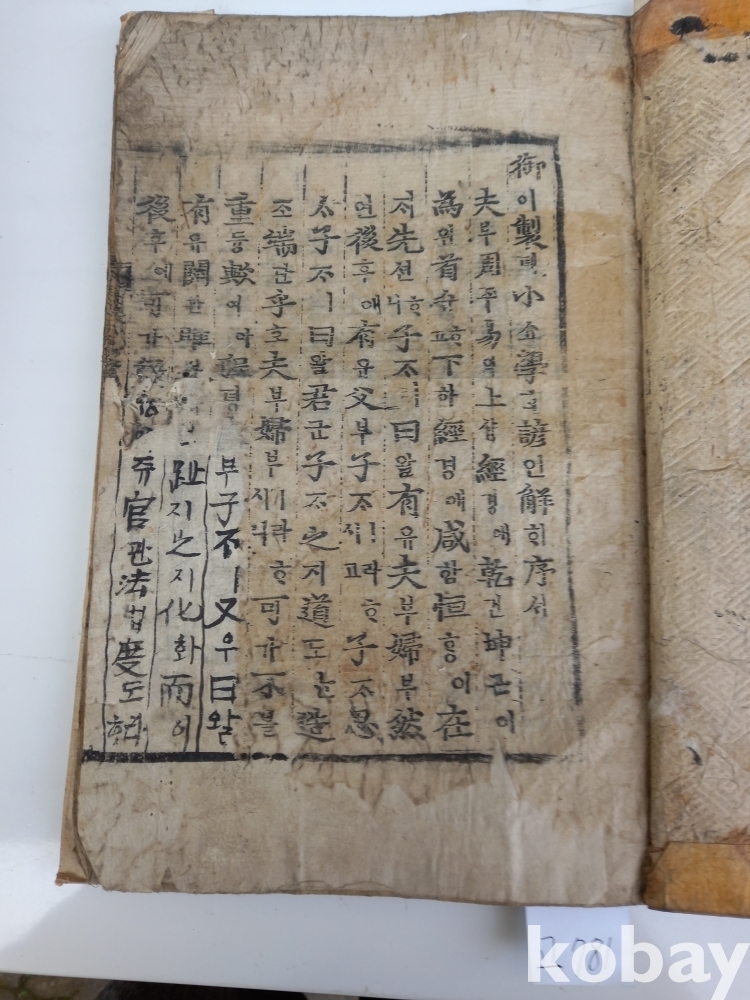 御어製뎨小쇼學ᄒᆞᆨ諺언解ᄒᆡ序셔
夫부周쥬易역上샹經경애乾건坤곤이
為위首슈ᄒᆞ고下하經경애咸함恒ᄒᆞᆼ이在
先션ᄒᆞ니子ᄌᆞㅣ曰왈有유夫부婦부然
연後후애有유父부子ᄌᆞㅣ라ᄒᆞ시고子ᄌᆞ思
子ᄌᆞㅣ曰왈君군子ᄌᆞ之지道도ᄂᆞᆫ造
조端단乎호夫부婦부ㅣ라ᄒᆞ시니可가不블
重듕歟여아程뎡부子ᄌᆞㅣ又우曰왈
有유關관雎趾지之지化화而이
後후에쥬官관法법度도
kobay